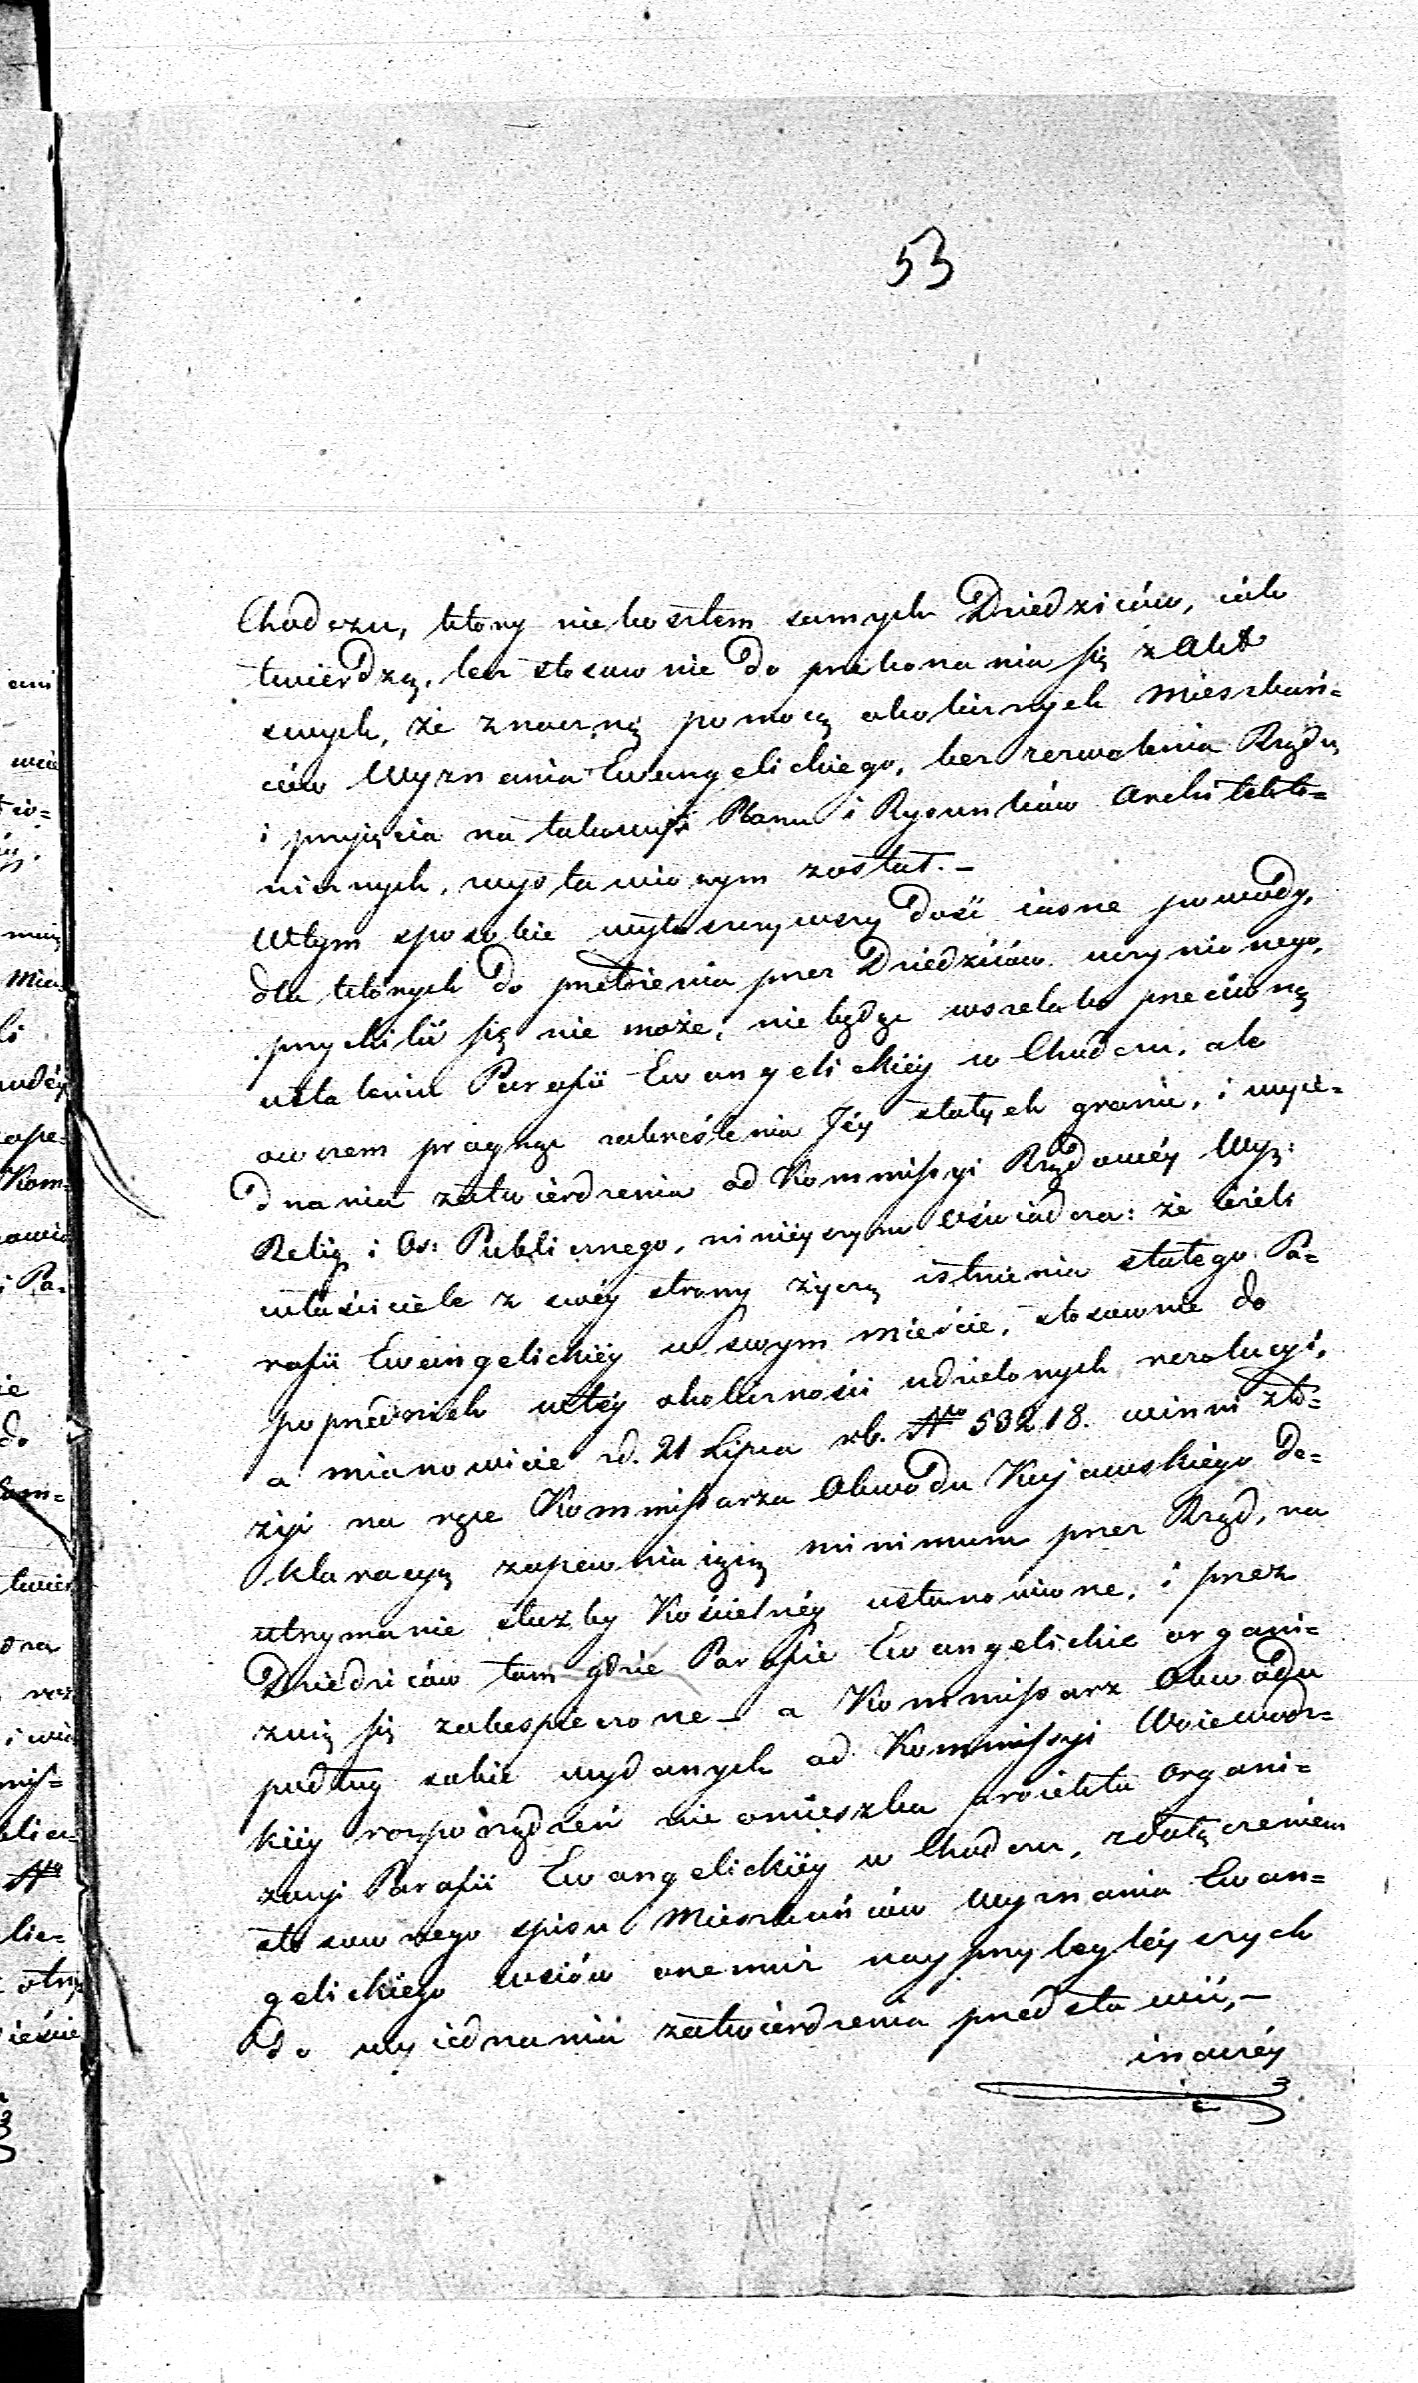 53
Chodczu, który nie kosztem samych Dziedziców, iak
twierdzą, lecz stosownie do przekonania się z Akt
swych, ze znaczną pomocą okolicznych Mieszkań=
ców Wyznania Ewangelickiego, bez zezwolenia Rządu,
i przyięcia na takowy Planu i Rysunków Architekto=
nicznych, wystawionym został. –
W tym sposobie wytłuszczywszy dość iasne powody,
dla których do przełożenia przez Dziedziców uczynionego,
przychilić się nie może; nie będąc wszelako przeciwną
ustaleniu Parafii Ewangelickiéy w Chodczu, ale
owszem pragnąc zakreślenia Jéy stałych granic, i wyie=
dnania zatwierdzenia od Kommissyi Rządowéy Wyz:
Relig i Os: Publicznego, ninieyszym oświadcza: że ieżeli
właściciele z swéy strony życzą istnienia stałego Pa=
rafii Ewangelickiéy w swym mieście, stosownie do
poprzednich w téy okoliczności udzielonych rezolucyi,
a mianowicie z d. 21 Lipca rb. No 53218. winni zło=
żyć na ręce Kommissarza Obwodu Kujawskiego De=
klaracyą zapewniaiącą minimum przez Rząd, na
utrzymanie służby Kościelnéy ustanowione, i przez
Dziedziców tam gdzie Parafie Ewangelickie organi=
zuią się zabespieczone – a Kommissarz Obwodu
podług sobie wydanych od Kommissyi Woiewodz=
kiéy rozporządzeń nie omieszka proiektu Organi=
zacyi Parafii Ewangelickiéy w Chodczu, z dołączeniem
stosownego spisu Mieszkańców Wyznania Ewan=
gelickiego wsiów onemuż nayprzyległéyszych
do wyiednania zatwierdzenia przedstawić, –
inaczéy